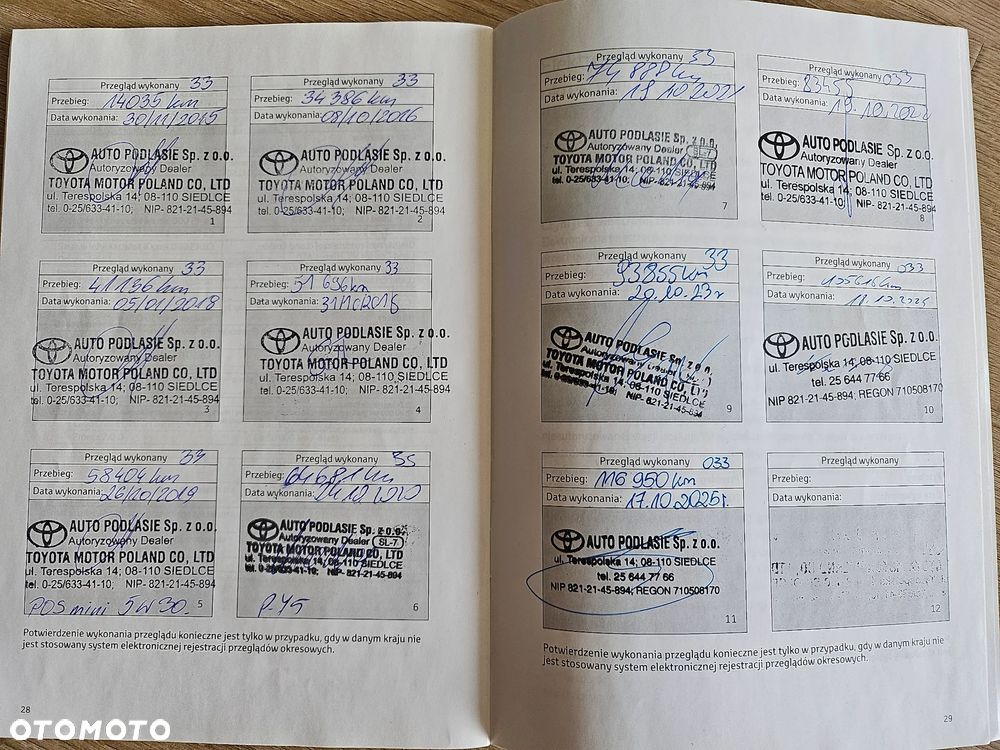 Przegląd wykonany 33
Przebieg: 14035 km
Data wykonania: 30/11/2015
AUTO PODLASIE Sp. z o.o.
Autoryzowany Dealer
TOYOTA MOTOR POLAND CO, LTD
ul. Terespolska 14; 08-110 SIEDLCE
tel. 0-25/633-41-10; NIP- 821-21-45-894
1
Przegląd wykonany 33
Przebieg: 34 386 km
Data wykonania: 08/10/2016
AUTO PODLASIE Sp. z o.o.
Autoryzowany Dealer
TOYOTA MOTOR POLAND CO, LTD
ul. Terespolska 14; 08-110 SIEDLCE
tel. 0-25/633-41-10; NIP- 821-21-45-894
2
Przegląd wykonany 33
Przebieg: 41 136 km
Data wykonania: 05/01/2018
AUTO PODLASIE Sp. z o.o.
Autoryzowany Dealer
TOYOTA MOTOR POLAND CO, LTD
ul. Terespolska 14; 08-110 SIEDLCE
tel. 0-25/633-41-10; NIP- 821-21-45-894
3
Przegląd wykonany 33
Przebieg: 51 696 km
Data wykonania:
AUTO PODLASIE Sp. z o.o.
Autoryzowany Dealer
TOYOTA MOTOR POLAND CO, LTD
ul. Terespolska 14; 08-110 SIEDLCE
tel. 0-25/633-41-10; NIP- 821-21-45-894
4
Przegląd wykonany
Przebieg: 58404 km
Data wykonania: 26/10/2019
AUTO PODLASIE Sp. z o.o.
Autoryzowany Dealer
TOYOTA MOTOR POLAND CO, LTD
ul. Terespolska 14; 08-110 SIEDLCE
tel. 0-25/633-41-10; NIP- 821-21-45-894
5W30.
5
Przegląd wykonany 35
Przebieg: 64681 km
Data wykonania:
AUTO PODLASIE Sp. z o.o.
Autoryzowany Dealer SL-7
TOYOTA MOTOR POLAND CO, LTD
ul. Terespolska 14; 08-110 SIEDLCE
tel. 0-25/633-41-10; NIP- 821-21-45-894
6
Potwierdzenie wykonania przeglądu konieczne jest tylko w przypadku, gdy w danym kraju nie
jest stosowany system elektronicznej rejestracji przeglądów okresowych.
28
Przegląd wykonany 33
Przebieg:
Data wykonania: 19 10 2021
AUTO PODLASIE Sp. z o.o.
Autoryzowany Dealer SL-7
TOYOTA MOTOR POLAND CO, LTD
ul. Terespolska 14; 08-110 SIEDLCE
tel. 0-25/633-41-10; NIP- 821-21-45-894
7
Przegląd wykonany 033
Przebieg: 83455
Data wykonania: 19.10.2022
AUTO PODLASIE Sp. z o.o.
Autoryzowany Dealer
TOYOTA MOTOR POLAND CO, LTD
ul. Terespolska 14; 08-110 SIEDLCE
tel. 0-25/633-41-10; NIP- 821-21-45-894
8
Przegląd wykonany 33
Przebieg: 93855 km
Data wykonania: 20.10.23r
AUTO PODLASIE Sp. z o.o.
Autoryzowany Dealer
TOYOTA MOTOR POLAND CO, LTD
ul. Terespolska 14; 08-110 SIEDLCE
tel. 0-25/633-41-10; NIP- 821-21-45-894
9
Przegląd wykonany 033
Przebieg:
Data wykonania:
AUTO PODLASIE Sp. z o.o.
ul. Terespolska 14; 08-110 SIEDLCE
tel. 25 644 77 66
NIP 821-21-45-894; REGON 710508170
10
Przegląd wykonany 033
Przebieg: 116 950 km
Data wykonania: 17.10.2025r.
AUTO PODLASIE Sp. z o.o.
ul. Terespolska 14; 08-110 SIEDLCE
tel. 25 644 77 66
NIP 821-21-45-894; REGON 710508170
11
Przegląd wykonany
Przebieg:
Data wykonania:
12
Potwierdzenie wykonania przeglądu konieczne jest tylko w przypadku, gdy w danym kraju nie
jest stosowany system elektronicznej rejestracji przeglądów okresowych.
29
OTOMOTO